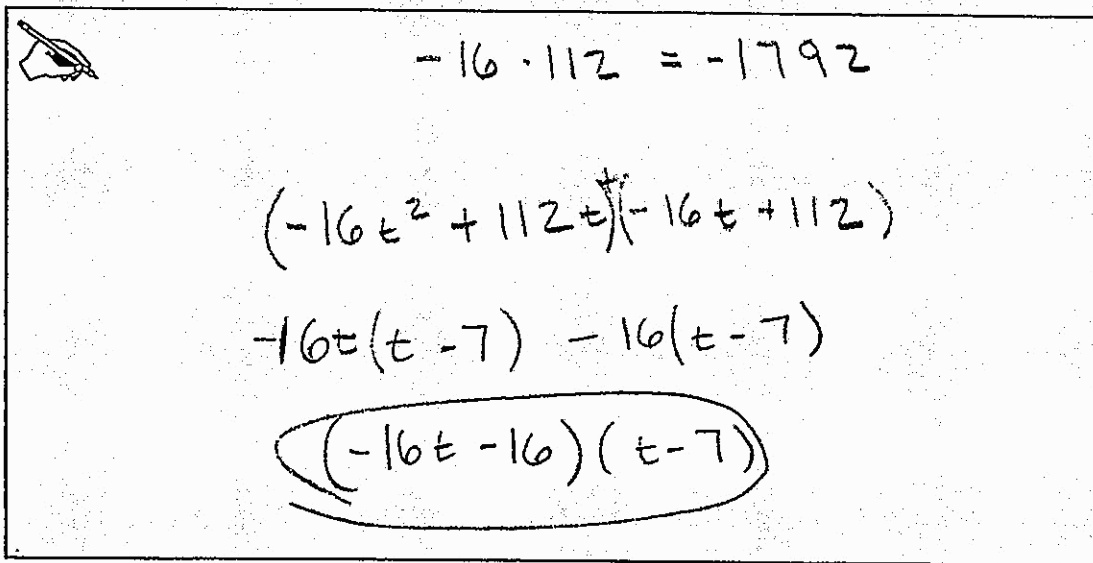 -16 · 112 = -1792
(-16t² + 112t)+(-16t + 112)
-16t(t - 7) - 16(t - 7)
(-16t - 16)(t - 7)